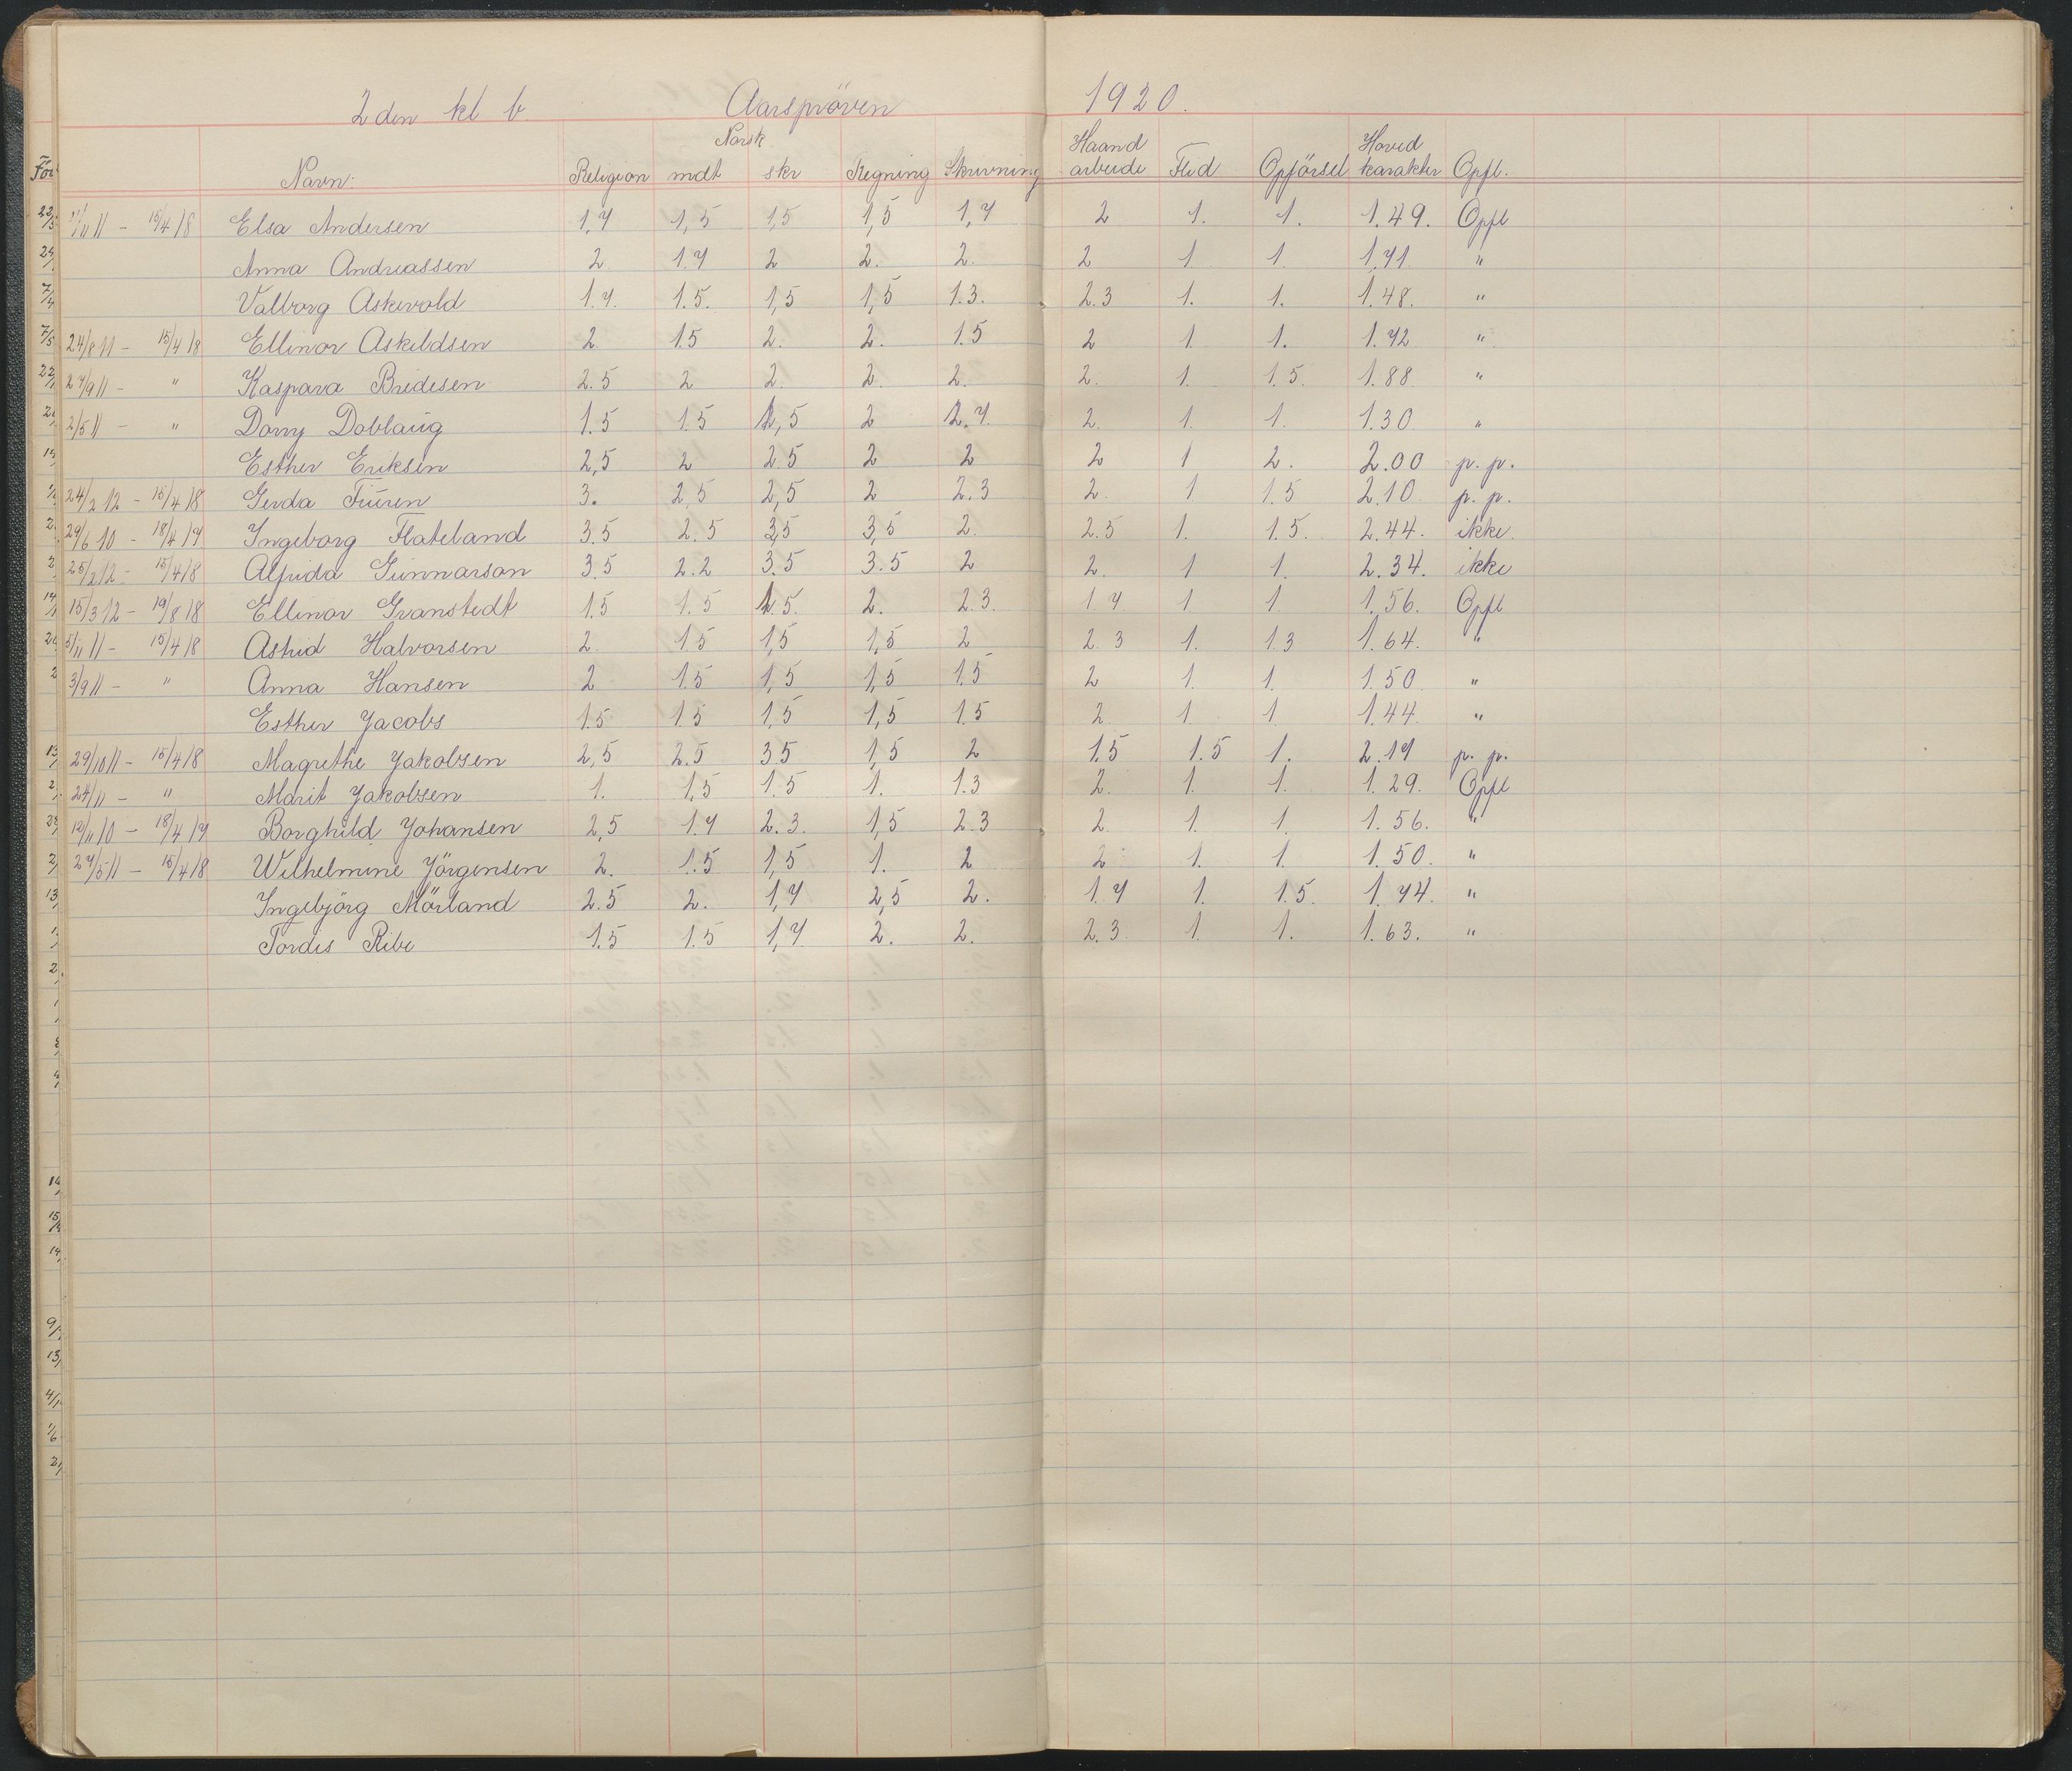 2den kl b Aarsprøven 1920.
Navn: Religion Norsk mdt skr Regning Skrivning Haand arbeide Flid Opførsel Hoved karakter Opfl.
11/11 11 - 15/4 18 Elsa Andersen 1,7 1,5 1,5 1,5 1,7 2 1. 1. 1.49. Opfl
Anna Andreassen 2 1.7 2 2. 2. 2 1 1. 1.71 "
Valborg Askevold 1.7. 1.5. 1,5 1,5 1.3. 2.3 1. 1. 1.48. "
24/8 11 - 15/4 18 Ellinor Askildsen 2 1.5 2. 2. 1.5 2 1. 1. 1.72 "
27/9 11 - " Kaspara Bredesen 2.5 2 2. 2. 2. 2. 1. 1.5. 1.88 "
2/5 11 - " Dorry Doblaug 1.5 1.5 1,5 2 2.7. 2. 1. 1. 1.30 "
Esther Eriksen 2,5 2 2.5 2 2 2 1 2. 2.00 p.p.
24/2 12 - 15/4 18 Gerda Furen 3. 2,5 2,5 2 2.3 2. 1 1.5 2.10 p.p.
29/6 10 - 18/4 17 Ingeborg Flateland 3.5 2.5 3,5 3,5 2. 2.5 1. 1.5. 2.44. ikke.
25/2 12 - 15/4 18 Alfrida Gunnarson 3.5 2.2 3.5 3.5 2 2. 1 1. 2.34. ikke
15/3 12 - 19/8 18 Ellinor Granstedt 1.5 1.5 1.5. 2. 2.3. 1.7. 1. 1 1.56. Opfl
5/11 11 - 15/4 18 Astrid Halvorsen 2. 1.5 1,5 1,5 2 2.3 1. 1.3 1.64. "
3/9 11 - " Anna Hansen 2 1.5 1,5 1,5 1.5 2 1. 1. 1.50. "
Esther Jacobs 1.5 1.5 1,5 1,5 1.5 2. 1. 1 1.44. "
29/10 11 - 15/4 18 Magrethe Jakobsen 2,5 2.5 3.5 1,5 2 1.5 1.5 1. 2.17 p.p.
24/11 - " Marit Jakobsen 1. 1,5 1.5 1. 1.3 2. 1. 1. 1.29. Opfl
12/11 10 - 18/4 17 Borghild Johansen 2,5 1.7 2.3. 1,5 2.3 2. 1. 1. 1.56. "
27/5 11 - 15/4 18 Wilhelmine Jörgensen 2. 1.5 1,5 1. 2 2 1. 1. 1.50. "
Ingebjörg Mörland 2.5 2. 1,7 2,5 2. 1.7 1. 1.5. 1.74. "
Tordis Ribe 1.5 1.5 1,7. 2. 2. 2.3 1. 1. 1.63. "